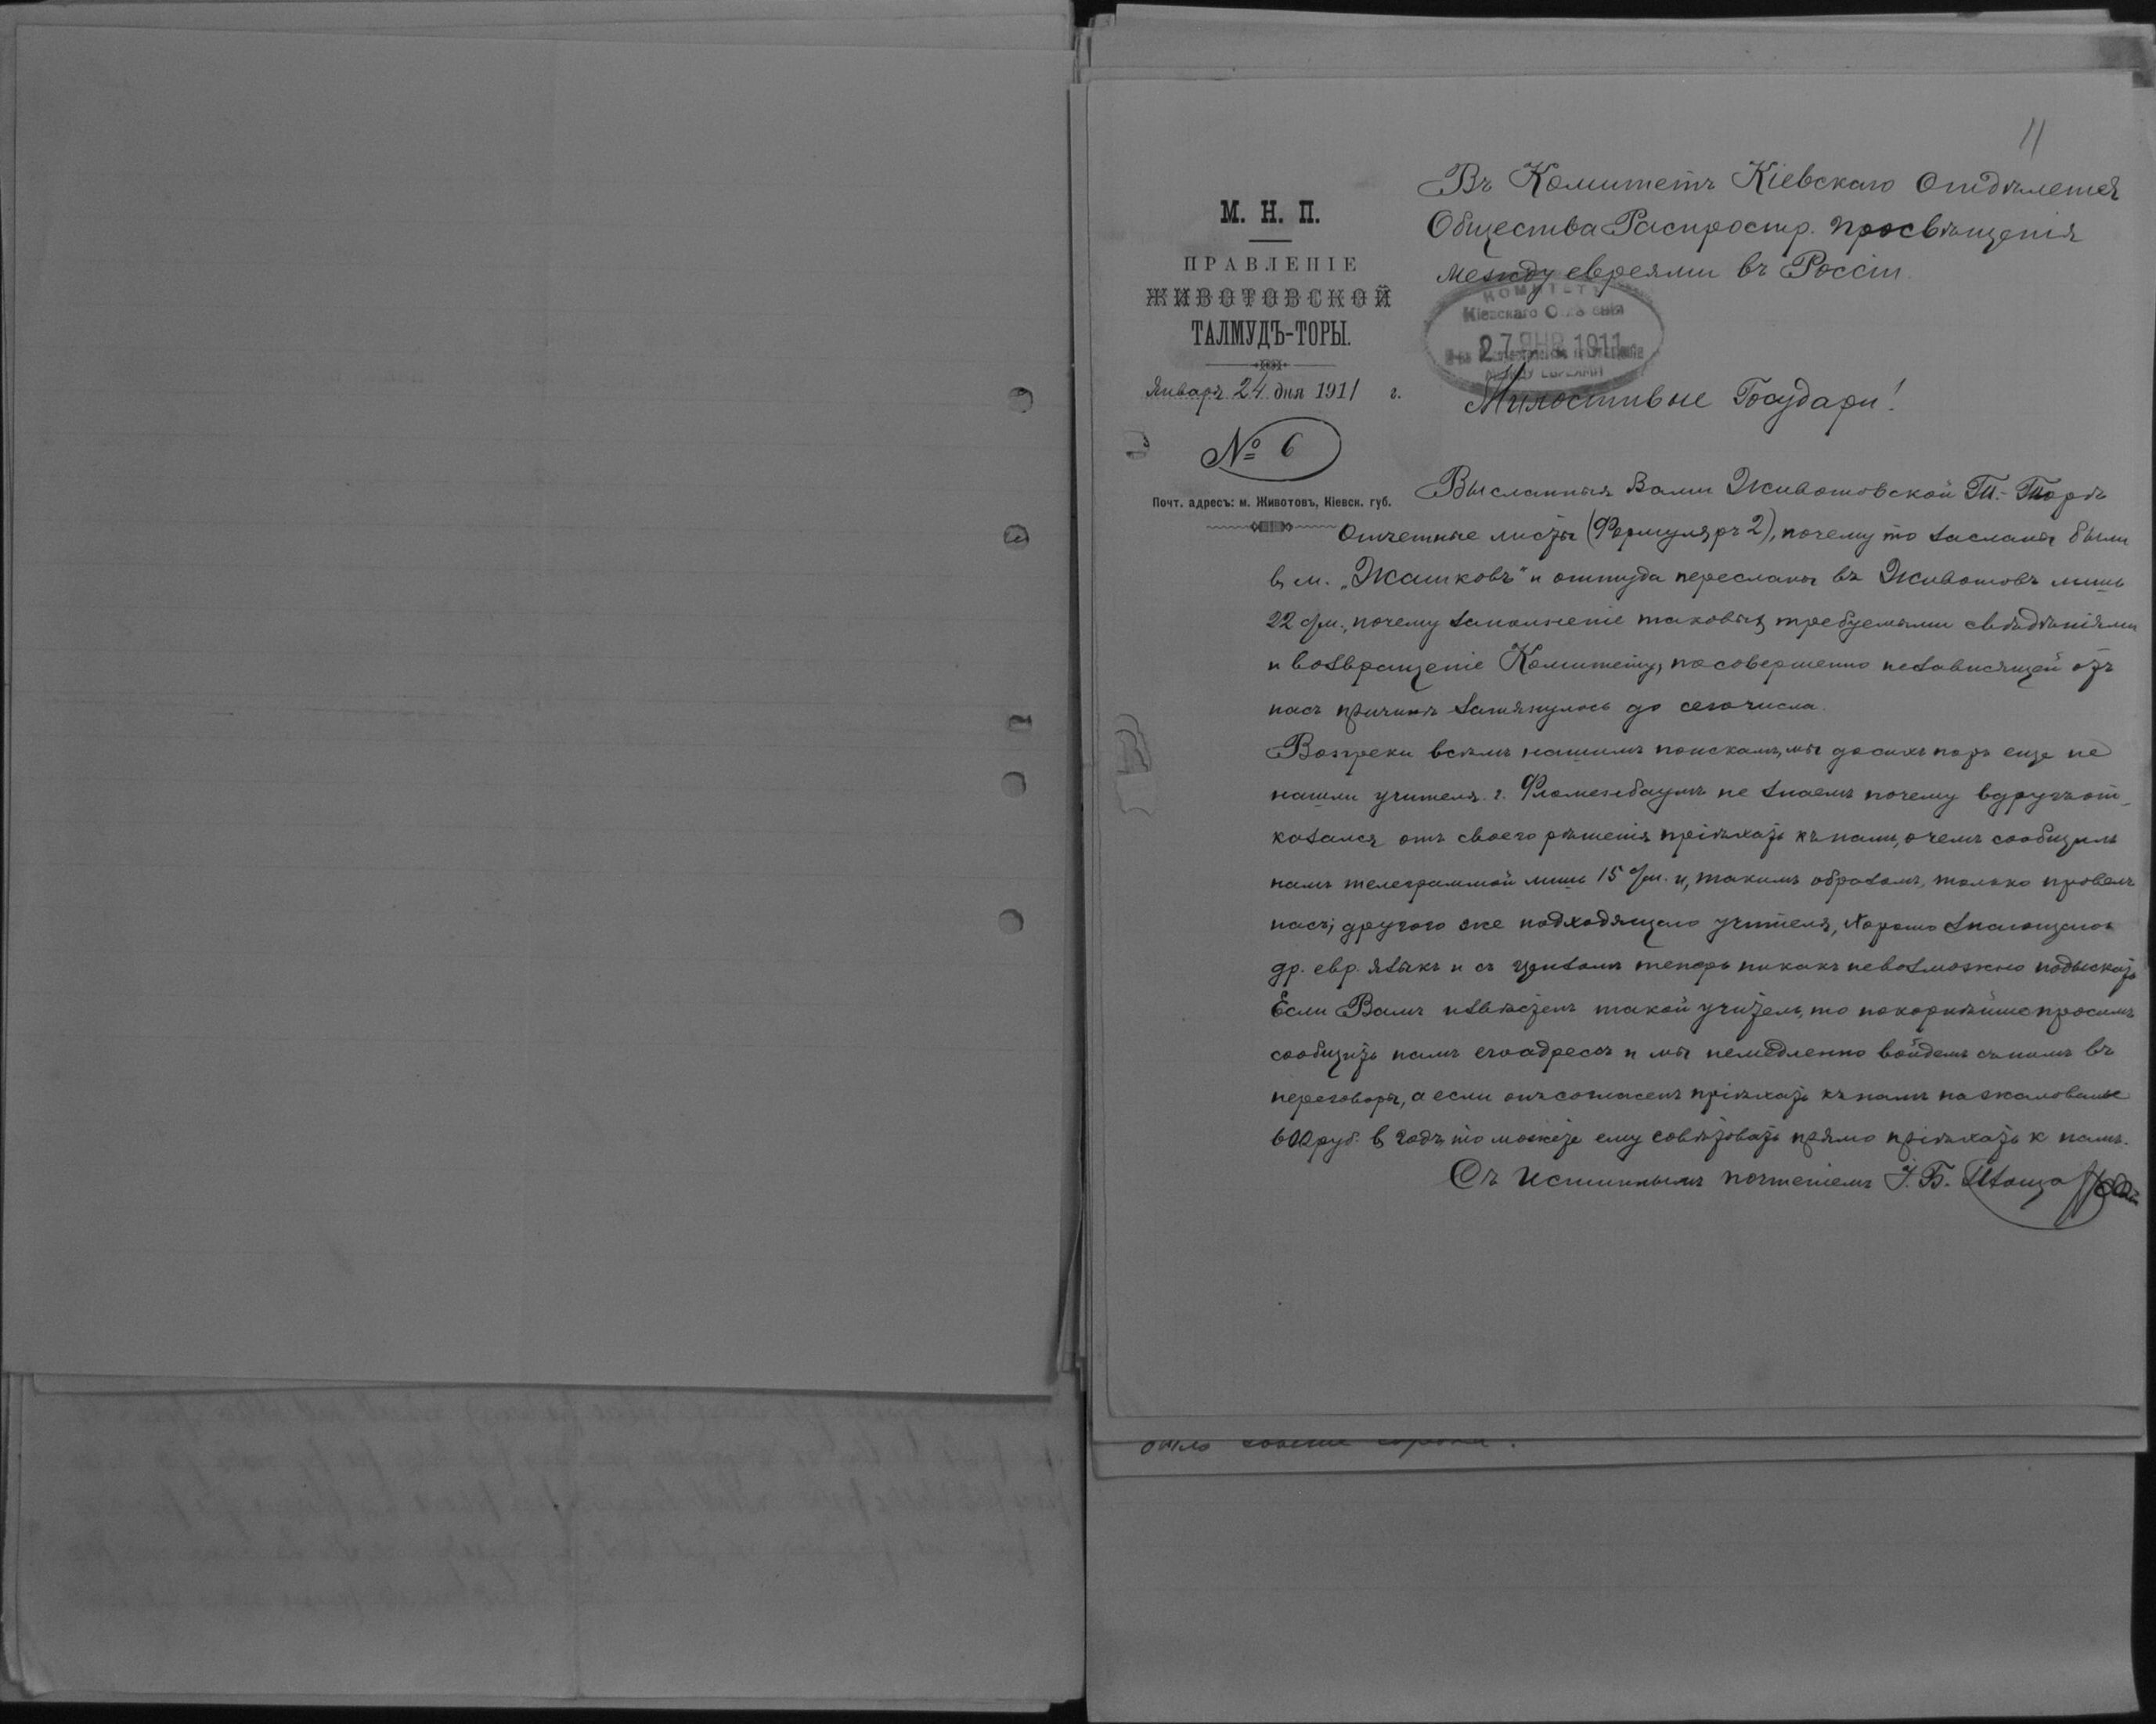 11
Въ Комитетъ Кіевскаго Отдѣленія
Общества Распростр. Просвѣщенія
между евреями въ Россіи.
М. Н. П.
ПРАВЛЕНІЕ
ЖИВОТОВСКОЙ
ТАЛМУДЪ-ТОРЫ.
Январь 24 дня 1911 г.
№ 6
Почт. адресъ: м. Животовъ, Кіевск. губ.
КОМИТЕТЪ
Кіевскаго
27 ЯНВ 1911
МЕЖДУ ЕВРЕЯМИ
Милостивые Государи!
Высланныя Вами Животовской Т.-Торѣ
отчетные листы (Формуляръ 2), почему то засланы были
въ м. „Жашковъ" и оттуда пересланы въ Животовъ лишь
22 с/м., почему заполненіе таковыхъ требуемыми свѣдѣніями
и возвращеніе Комитету, по совершенно независящей отъ
насъ причинѣ затянулось до сего числа.
Вопреки всѣмъ нашимъ поискамъ, мы до сихъ поръ еще не
нашли учителя. г. Фломенбаумъ не знаемъ почему вдругъ от-
казался отъ своего рѣшенія пріѣхать къ намъ, о чемъ сообщилъ
намъ телеграммой лишь 15 с/м. и, такимъ образомъ, только провелъ
насъ; другого же подходящаго учителя, хорошо знающаго
др. евр. языкъ и съ цензомъ теперь никакъ невозможно подыскать
Если Вамъ извѣстенъ такой учитель, то покорнѣйше просимъ
сообщить намъ его адресъ и мы немедленно войдемъ съ нимъ въ
переговоры, а если онъ согласенъ пріѣхать къ намъ на жалованье
600 руб. въ годъ, то можете ему совѣтовать прямо пріѣхать к намъ.
Съ истиннымъ почтеніемъ І. Б.
было